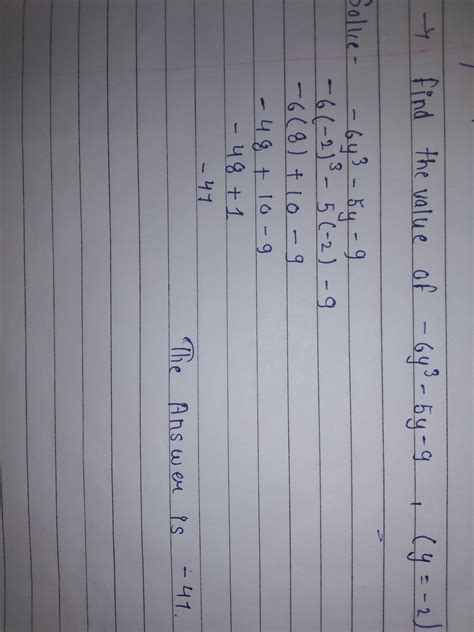 → find the value of -6y³-5y-9 , (y=-2)
Solve- -6y³-5y-9
-6(-2)³-5(-2)-9
-6(8)+10-9
-48+10-9
-48+1
-47
The Answer is -47.